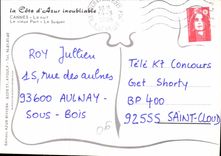 La Côte d'Azur inoubliable
CANNES - La nuit
Le vieux Port - Le Suquet
ROY Jullien
15, rue des aulnes
93600 AULNAY -
SOUS - BOIS
Télé K7 Concours
Get Shorty
BP 400
92555 SAINT-CLOUD